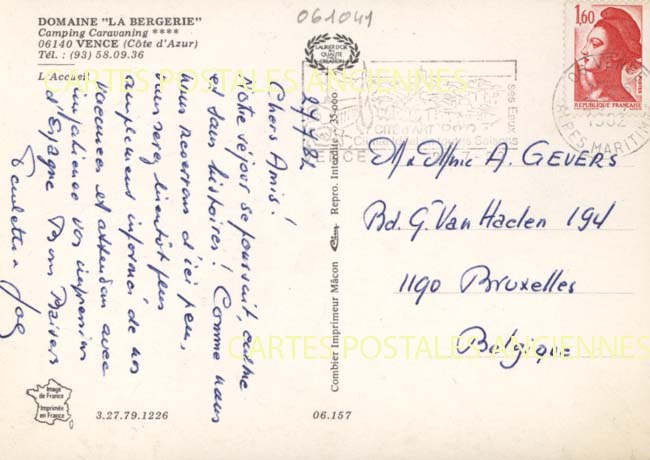 061041
DOMAINE "LA BERGERIE"
Camping Caravaning ****
06140 VENCE (Côte d'Azur)
Tél. : (93) 58.09.36
L'Accueil
LAURIER D'OR
QUALITÉ
CRÉATION
1,60
REPUBLIQUE FRANÇAISE
1982
ALPES-MARITIMES
CITÉ D'ART
ses Eaux
VENCE
CARTES POSTALES ANCIENNES
27.7.82
Chers Amis!
Notre séjour se poursuit, calme
et sans histoires! Comme nous
nous reverrons d'ici peu,
vous serez bientôt plus
amplement informés de nos
vacances et attendons avec
impatience vos impressions
d'Espagne Bons Baisers
Paulette & Joe
Combier Imprimeur Mâcon
Repro. Interdite
35000
M & Mme A. GEVERS
Bd. G. Van Haelen 194
1190 Bruxelles
Belgique
CARTES POSTALES ANCIENNES
Image
de France
Imprimée
en France
3.27.79.1226
06.157